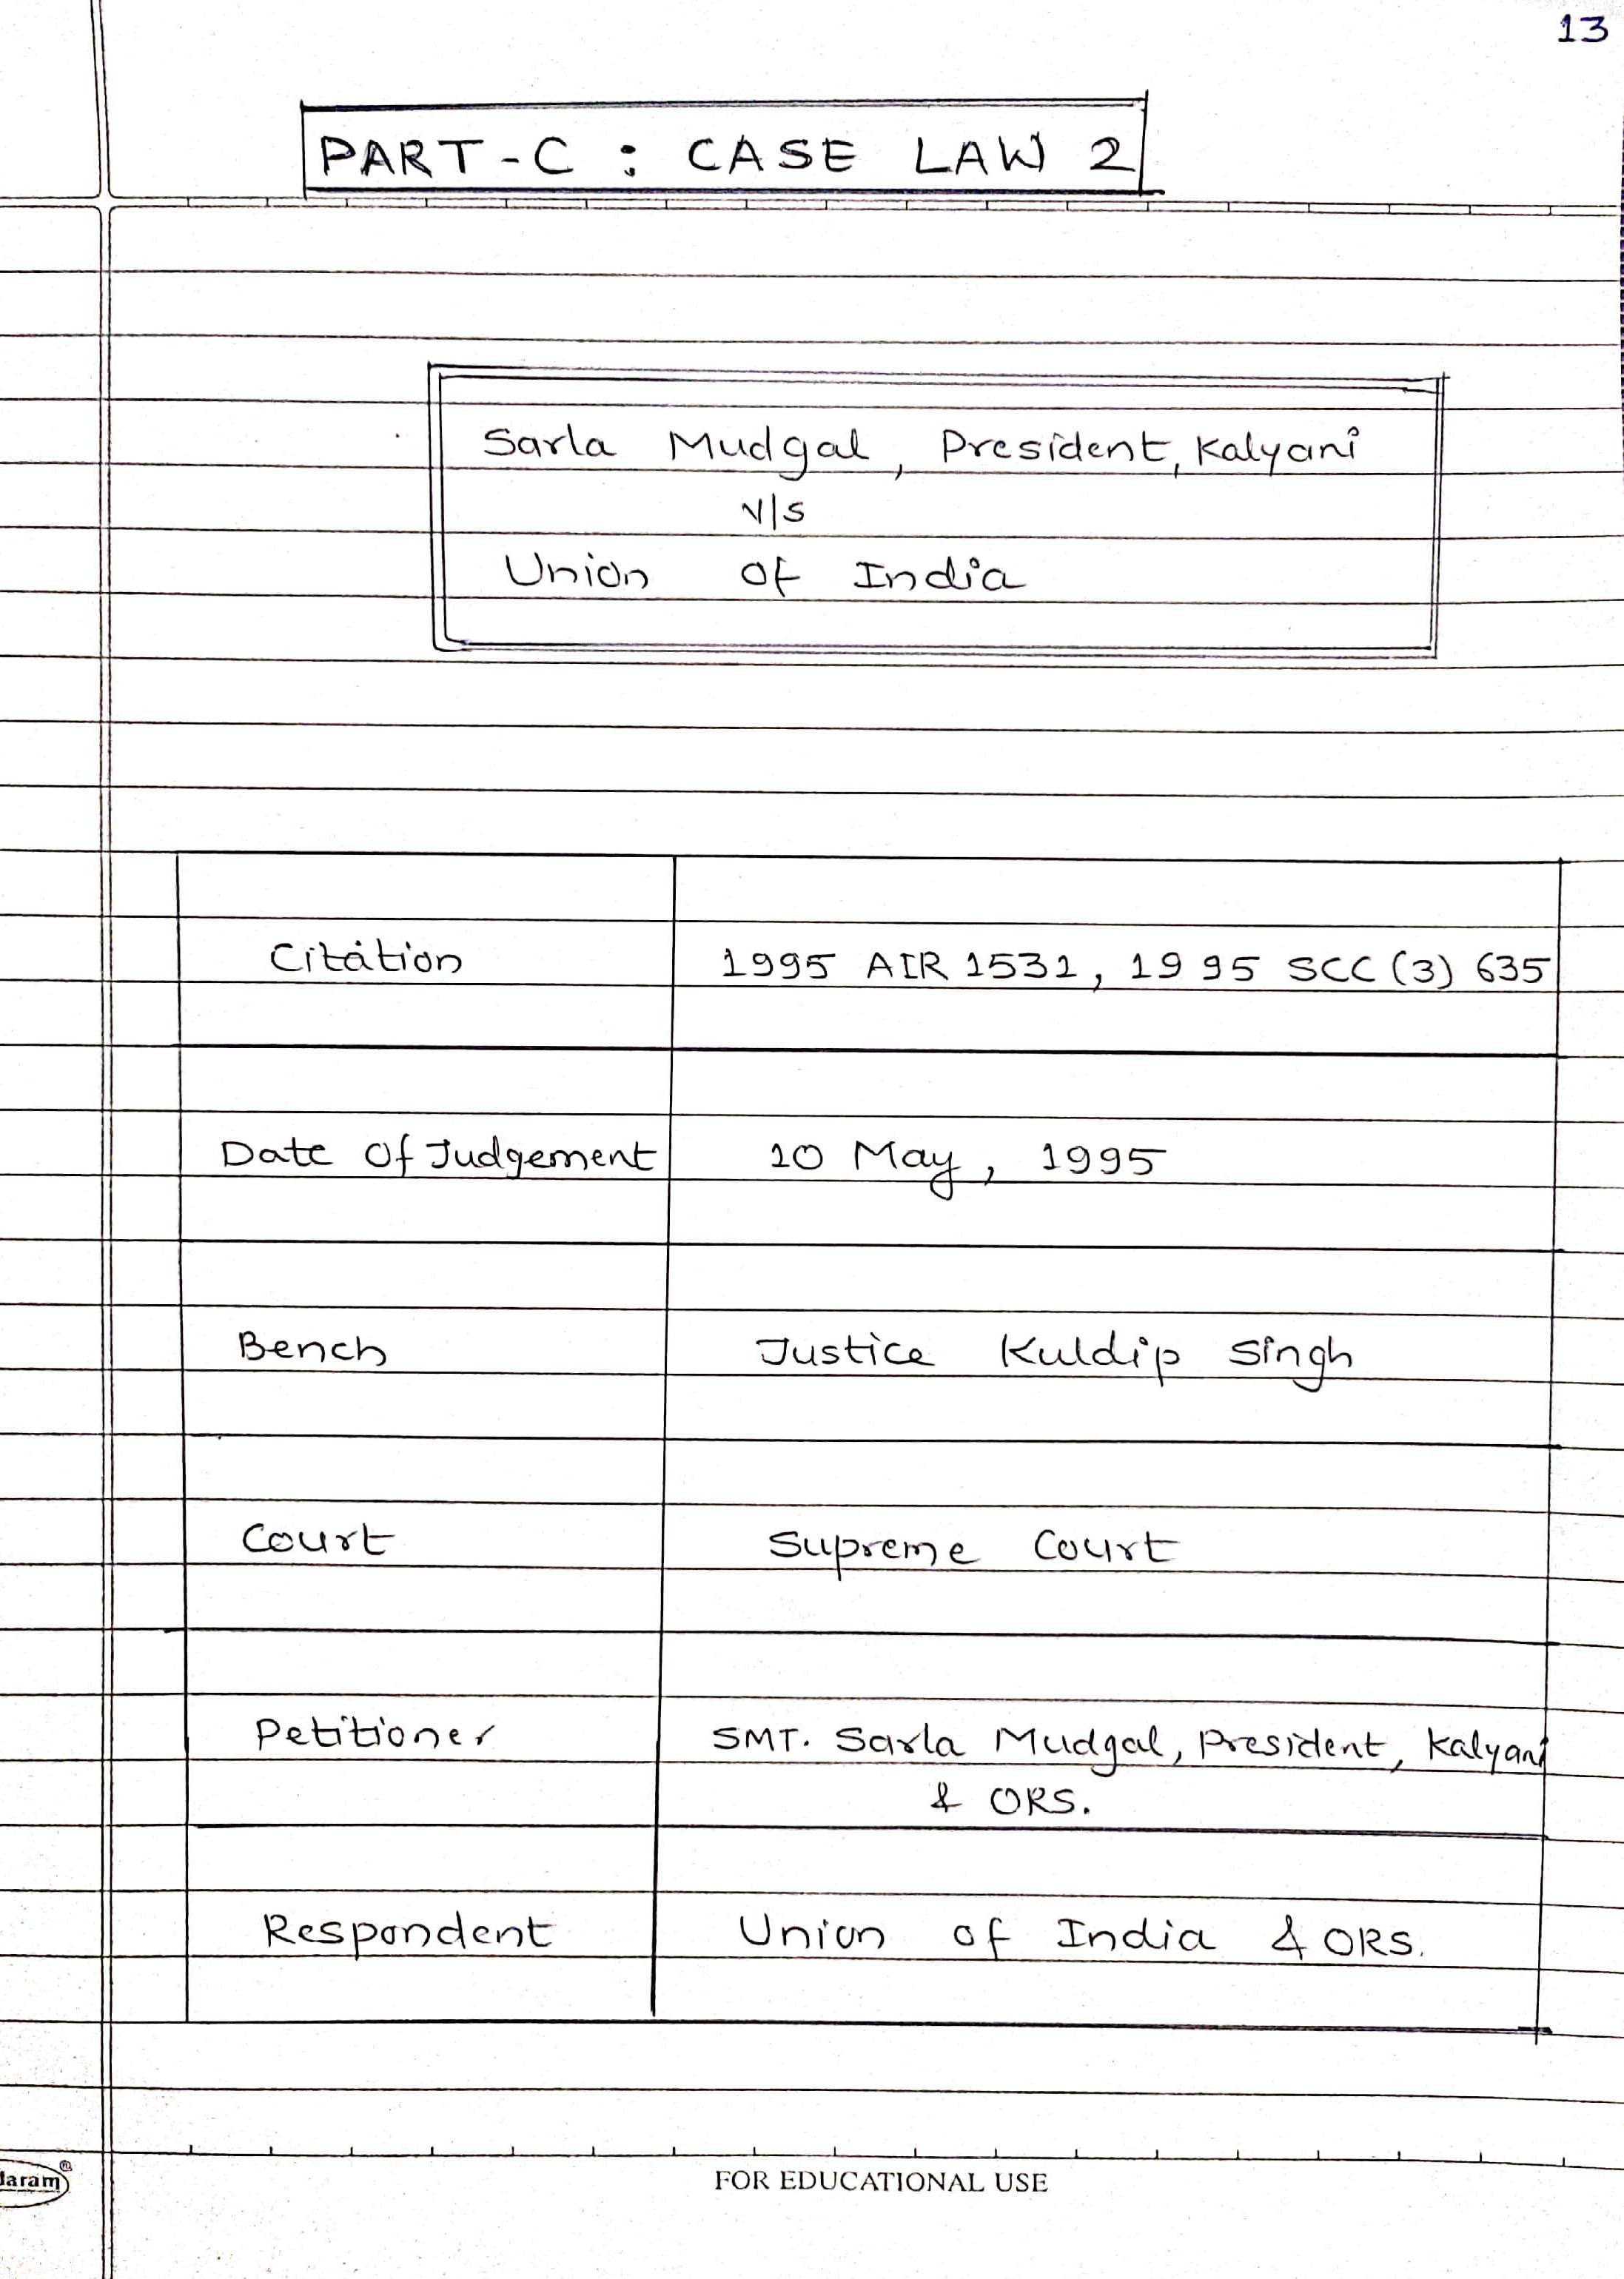 13
PART-C : CASE LAW 2
Sarla Mudgal, President, Kalyani
V/s
Union of India
Citation 1995 AIR 1531, 1995 SCC (3) 635
Date of Judgement 10 May, 1995
Bench Justice Kuldip Singh
Court Supreme Court
Petitioner SMT. Sarla Mudgal, President, Kalyani
& ORS.
Respondent Union of India & ORS.
FOR EDUCATIONAL USE